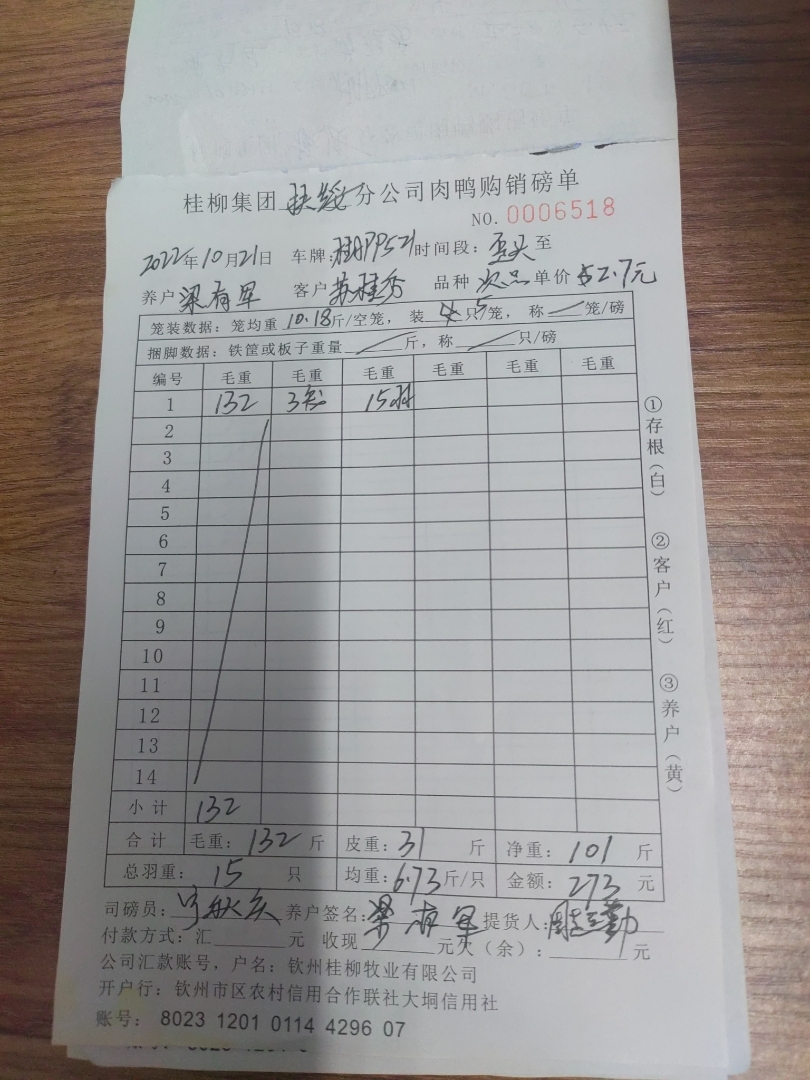 桂柳集团扶绥分公司肉鸭购销磅单
NO. 0006518
2022年10月21日 车牌:桂APP521 时间段: 至
养户 梁有军 客户 苏桂秀 品种 次品 单价 2.7元
笼装数据:笼均重 10.18 斤/空笼, 装 5 只/笼, 称 笼/磅
捆脚数据:铁筐或板子重量 斤,称 只/磅
编号 毛重 毛重 毛重 毛重 毛重 毛重
1 132 3笼 15羽
2
3
4
5
6
7
8
9
10
11
12
13
14
小计 132
合计 毛重: 132 斤 皮重: 31 斤 净重: 101 斤
总羽重: 15 只 均重: 6.73 斤/只 金额: 273 元
司磅员: 养户签名: 梁有军 提货人:
付款方式:汇 元 收现 元欠(余): 元
公司汇款账号,户名:钦州桂柳牧业有限公司
开户行:钦州市区农村信用合作联社大垌信用社
账号: 8023 1201 0114 4296 07
①存根(白)
②客户(红)
③养户(黄)